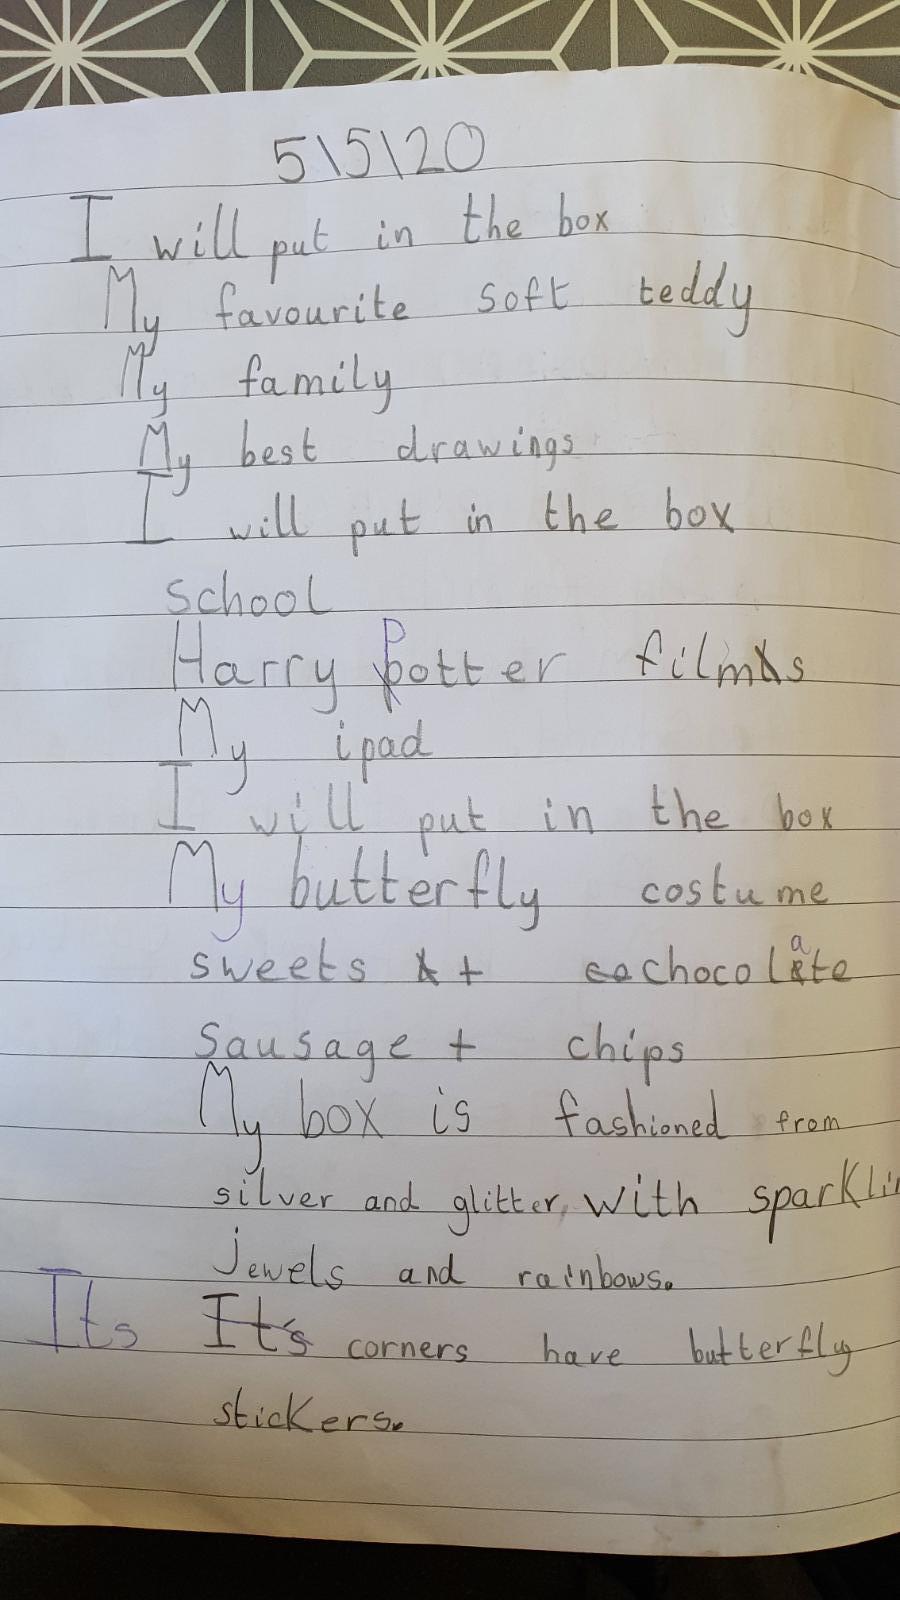 5\5\20
I will put in the box
My favourite soft teddy
My family
My best drawings
I will put in the box
school
Harry Potter films
My ipad
I will put in the box
My butterfly costume
sweets + chocolate
Sausage + chips
My box is fashioned from
silver and glitter, with sparklin
jewels and rainbows.
Its corners have butterfly
stickers.